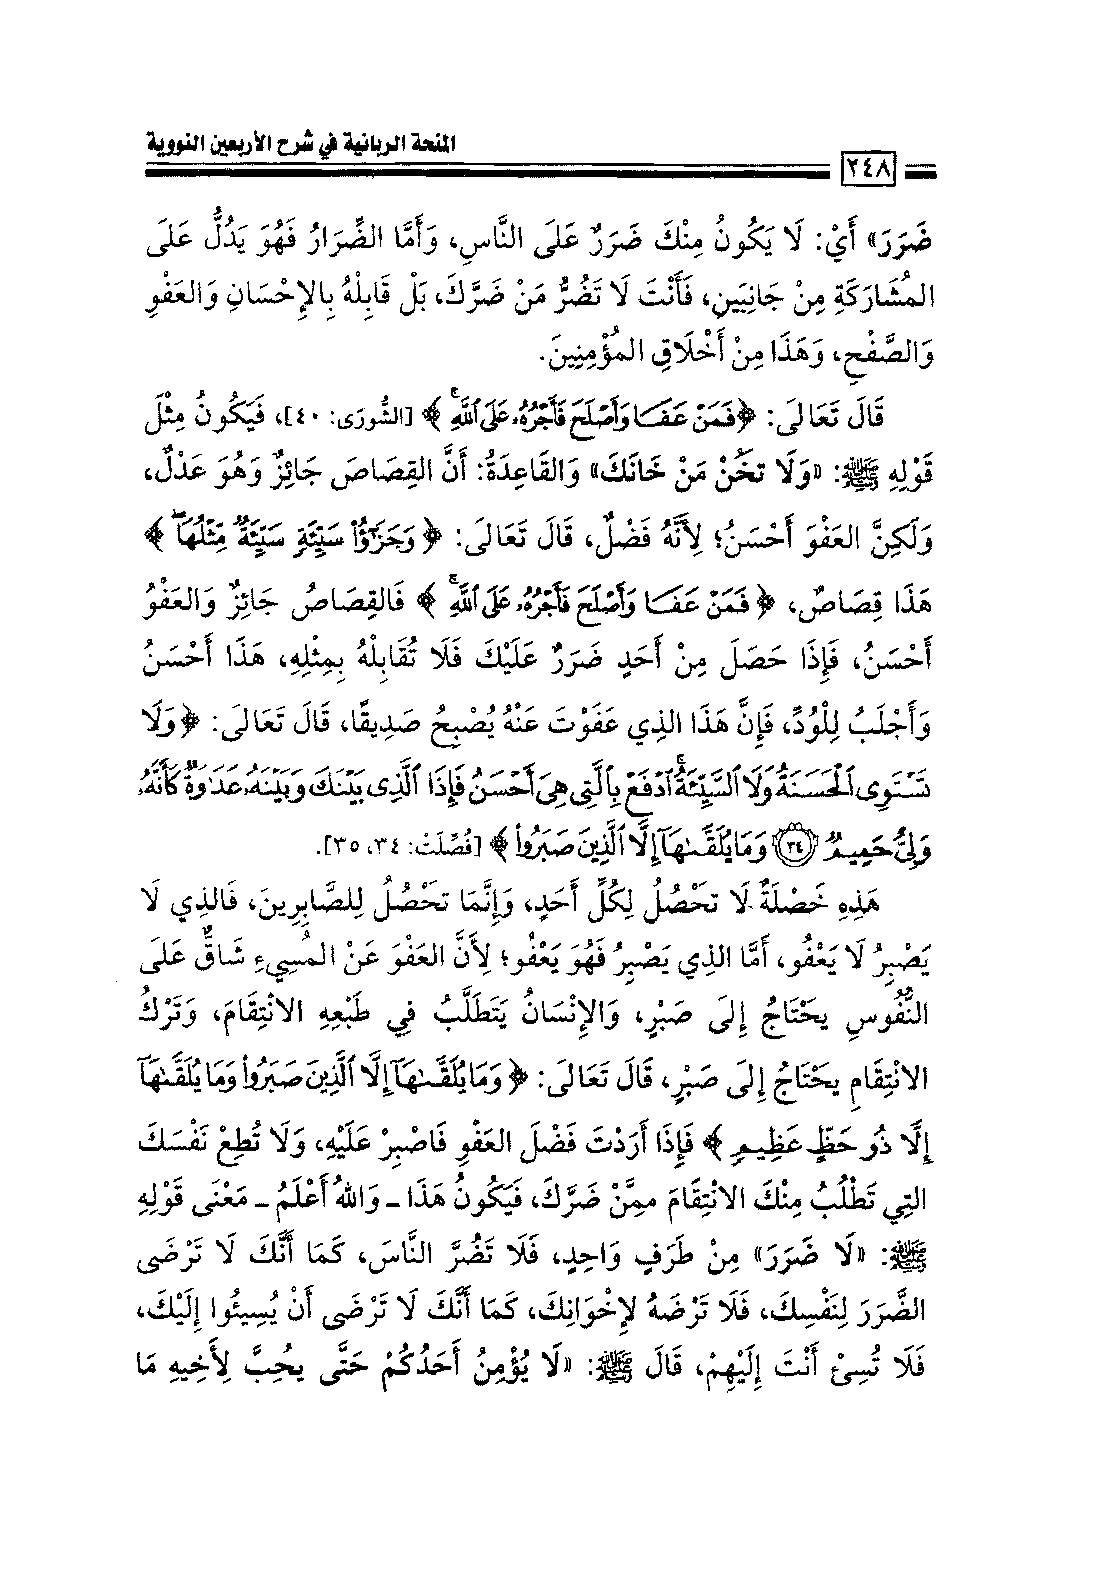 المنحة الربانية في شرح الأربعين النووية
٢٤٨
ضَرَرَ» أَيْ: لَا يَكُونُ مِنْكَ ضَرَرٌ عَلَى النَّاسِ، وَأَمَّا الضِّرَارُ فَهُوَ يَدُلُّ عَلَى
المُشَارَكَةِ مِنْ جَانِبَينِ، فَأَنْتَ لَا تَضُرُّ مَنْ ضَرَّكَ، بَلْ قَابِلْهُ بِالإِحْسَانِ وَالعَفْوِ
وَالصَّفْحِ، وَهَذَا مِنْ أَخْلَاقِ المُؤْمِنِينَ.
قَالَ تَعَالَى: ﴿فَمَنْ عَفَا وَأَصْلَحَ فَأَجْرُهُۥ عَلَى ٱللَّهِۚ﴾ [الشُّورَى: ٤٠]، فَيَكُونُ مِثْلَ
قَوْلِهِ ﷺ: «وَلَا تَخُنْ مَنْ خَانَكَ» وَالقَاعِدَةُ: أَنَّ القِصَاصَ جَائِزٌ وَهُوَ عَدْلٌ،
وَلَكِنَّ العَفْوَ أَحْسَنُ؛ لِأَنَّهُ فَضْلٌ، قَالَ تَعَالَى: ﴿وَجَزَٰٓؤُا۟ سَيِّئَةٍ سَيِّئَةٌ مِّثْلُهَاۖ﴾
هَذَا قِصَاصٌ، ﴿فَمَنْ عَفَا وَأَصْلَحَ فَأَجْرُهُۥ عَلَى ٱللَّهِۚ﴾ فَالقِصَاصُ جَائِزٌ وَالعَفْوُ
أَحْسَنُ، فَإِذَا حَصَلَ مِنْ أَحَدٍ ضَرَرٌ عَلَيْكَ فَلَا تُقَابِلْهُ بِمِثْلِهِ، هَذَا أَحْسَنُ
وَأَجْلَبُ لِلْوُدِّ، فَإِنَّ هَذَا الذِي عَفَوْتَ عَنْهُ يُصْبِحُ صَدِيقًا، قَالَ تَعَالَى: ﴿وَلَا
تَسْتَوِى ٱلْحَسَنَةُ وَلَا ٱلسَّيِّئَةُۚ ٱدْفَعْ بِٱلَّتِى هِىَ أَحْسَنُ فَإِذَا ٱلَّذِى بَيْنَكَ وَبَيْنَهُۥ عَدَٰوَةٌ كَأَنَّهُۥ
وَلِىٌّ حَمِيمٌ ٣٤ وَمَا يُلَقَّىٰهَآ إِلَّا ٱلَّذِينَ صَبَرُوا۟﴾ [فُصِّلَتْ: ٣٤، ٣٥].
هَذِهِ خَصْلَةٌ لَا تَحْصُلُ لِكُلِّ أَحَدٍ، وَإِنَّمَا تَحْصُلُ لِلصَّابِرِينَ، فَالذِي لَا
يَصْبِرُ لَا يَعْفُو، أَمَّا الذِي يَصْبِرُ فَهُوَ يَعْفُو؛ لِأَنَّ العَفْوَ عَنْ المُسِيءِ شَاقٌّ عَلَى
النُّفُوسِ يَحْتَاجُ إِلَى صَبْرٍ، وَالإِنْسَانُ يَتَطَلَّبُ فِي طَبْعِهِ الانْتِقَامَ، وَتَرْكُ
الانْتِقَامِ يَحْتَاجُ إِلَى صَبْرٍ، قَالَ تَعَالَى: ﴿وَمَا يُلَقَّىٰهَآ إِلَّا ٱلَّذِينَ صَبَرُوا۟ وَمَا يُلَقَّىٰهَآ
إِلَّا ذُو حَظٍّ عَظِيمٍ﴾ فَإِذَا أَرَدْتَ فَضْلَ العَفْوِ فَاصْبِرْ عَلَيْهِ، وَلَا تُطِعْ نَفْسَكَ
التِي تَطْلُبُ مِنْكَ الانْتِقَامَ مِمَّنْ ضَرَّكَ، فَيَكُونُ هَذَا ـ وَاللهُ أَعْلَمُ ـ مَعْنَى قَوْلِهِ
ﷺ: «لَا ضَرَرَ» مِنْ طَرَفٍ وَاحِدٍ، فَلَا تَضُرَّ النَّاسَ، كَمَا أَنَّكَ لَا تَرْضَى
الضَّرَرَ لِنَفْسِكَ، فَلَا تَرْضَهُ لإِخْوَانِكَ، كَمَا أَنَّكَ لَا تَرْضَى أَنْ يُسِيئُوا إِلَيْكَ،
فَلَا تُسِئْ أَنْتَ إِلَيْهِمْ، قَالَ ﷺ: «لَا يُؤْمِنُ أَحَدُكُمْ حَتَّى يُحِبَّ لِأَخِيهِ مَا